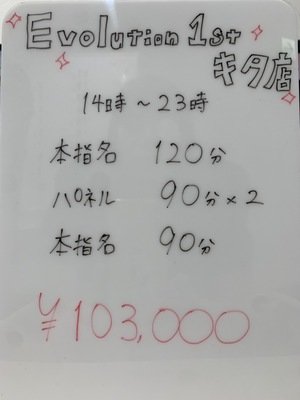 Evolution 1st
キタ店
14時～23時
本指名 120分
パネル 90分×2
本指名 90分
¥103,000